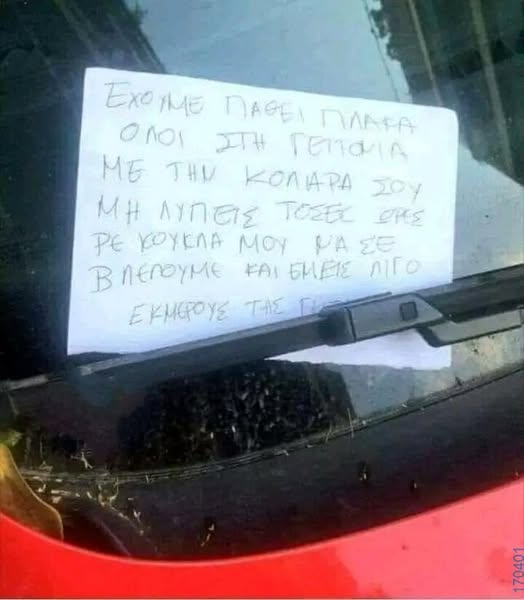 ΕΧΟΥΜΕ ΠΑΘΕΙ ΠΛΑΚΑ
ΟΛΟΙ ΣΤΗ ΓΕΙΤΟΝΙΑ
ΜΕ ΤΗΝ ΚΟΛΑΡΑ ΣΟΥ
ΜΗ ΛΥΠΕΙΣ ΤΟΣΕΣ ΩΡΕΣ
ΡΕ ΚΟΥΚΛΑ ΜΟΥ ΝΑ ΣΕ
ΒΛΕΠΟΥΜΕ ΚΑΙ ΕΜΕΙΣ ΛΙΓΟ
ΕΚΜΕΡΟΥΣ ΤΗΣ
170401